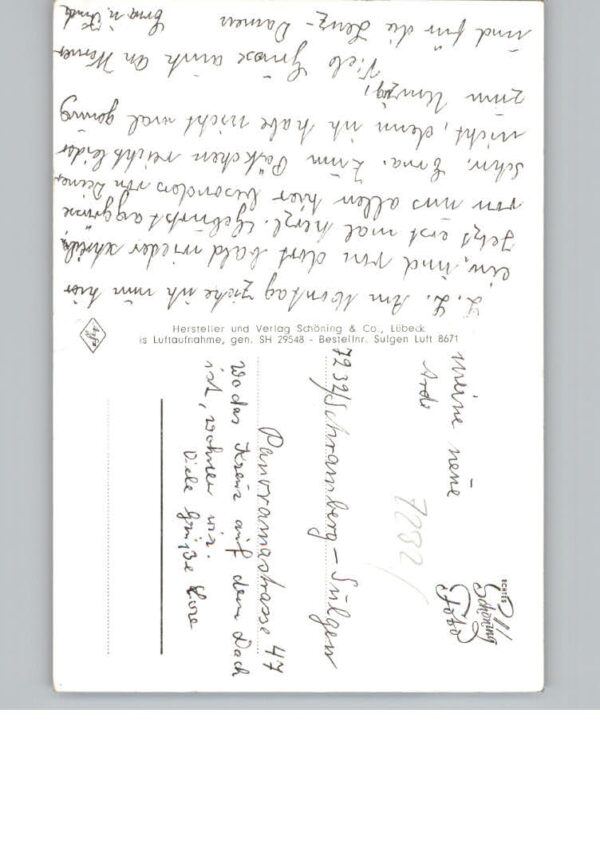 L. L. Am Montag ziehe ich nun hier
ein, und von dort bald wieder schreib.
Jetzt erst mal herzl. Geburtstagsgrüsse
von uns allen hier besonders von Deiner
Schw. Erna. Zum Päckchen reichts leider
nicht, denn ich habe nicht mal genug
zum Umzug,
Viele Grüsse auch an Werner
und für die Lenz-Damen
Erna u.
Hersteller und Verlag Schöning & Co., Lübeck
is Luftaufnahme, gen. SH 29548 - Bestellnr. Sulgen Luft 8671
meine neue
Adr.
7232/Schramberg-Sulgen
Panoramastrasse 47
Wo das Kreuz auf dem Dach
ist, wohnen wir.
Viele Grüße Lore
7232/
echte
Schöning
Foto
Agfa